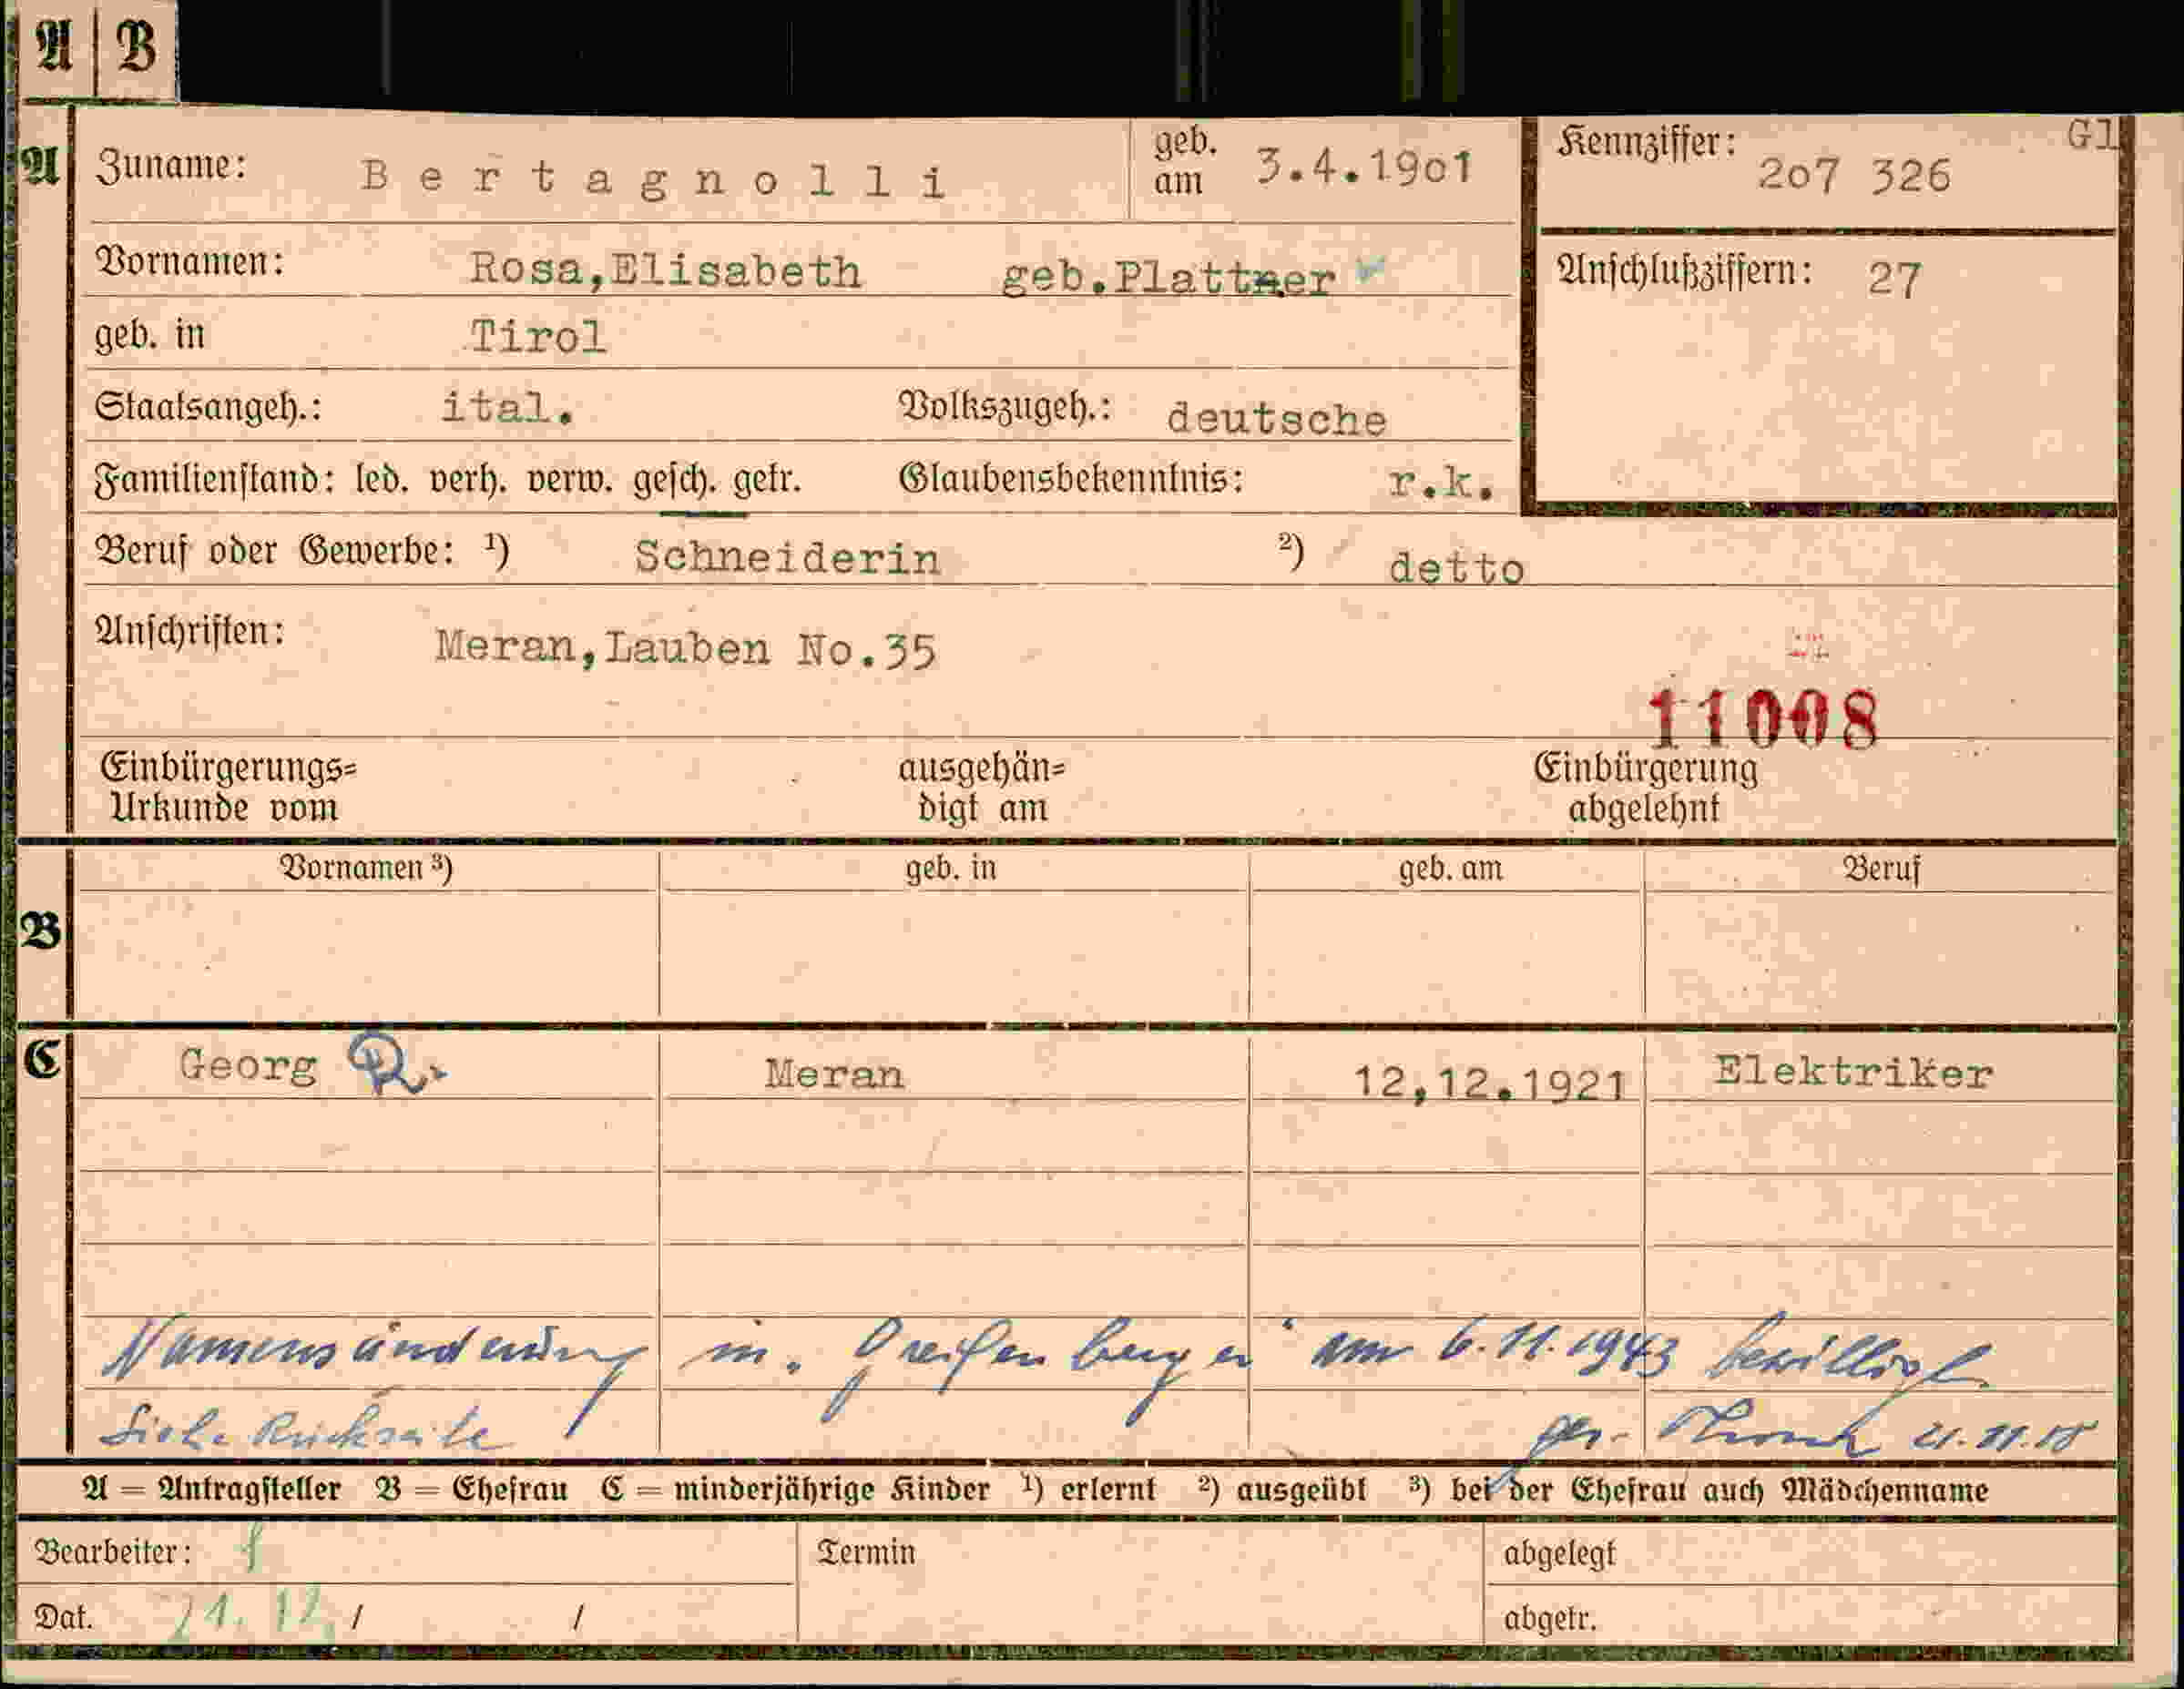 A | B
A Zuname: Bertagnolli geb. am 3.4.1901 Kennziffer: 207 326 Gl
Vornamen: Rosa,Elisabeth geb.Plattner Anschlußziffern: 27
geb. in Tirol
Staatsangeh.: ital. Volkszugeh.: deutsche
Familienstand: led. verh. verw. gesch. getr. Glaubensbekenntnis: r.k.
Beruf oder Gewerbe: ¹) Schneiderin ²) detto
Anschriften: Meran,Lauben No.35
11008
Einbürgerungs= ausgehän= Einbürgerung
Urkunde vom digt am abgelehnt
Vornamen ³) geb. in geb. am Beruf
B
C Georg Meran 12,12.1921 Elektriker
Namensänderung in "Greifenberger" am 6.11.1943 bewilligt
Siehe Rückseite gez. 21.11.
A = Antragsteller B = Ehefrau C = minderjährige Kinder ¹) erlernt ²) ausgeübt ³) bei der Ehefrau auch Mädchenname
Bearbeiter: Termin abgelegt
Dat. 21.12 / / abgetr.